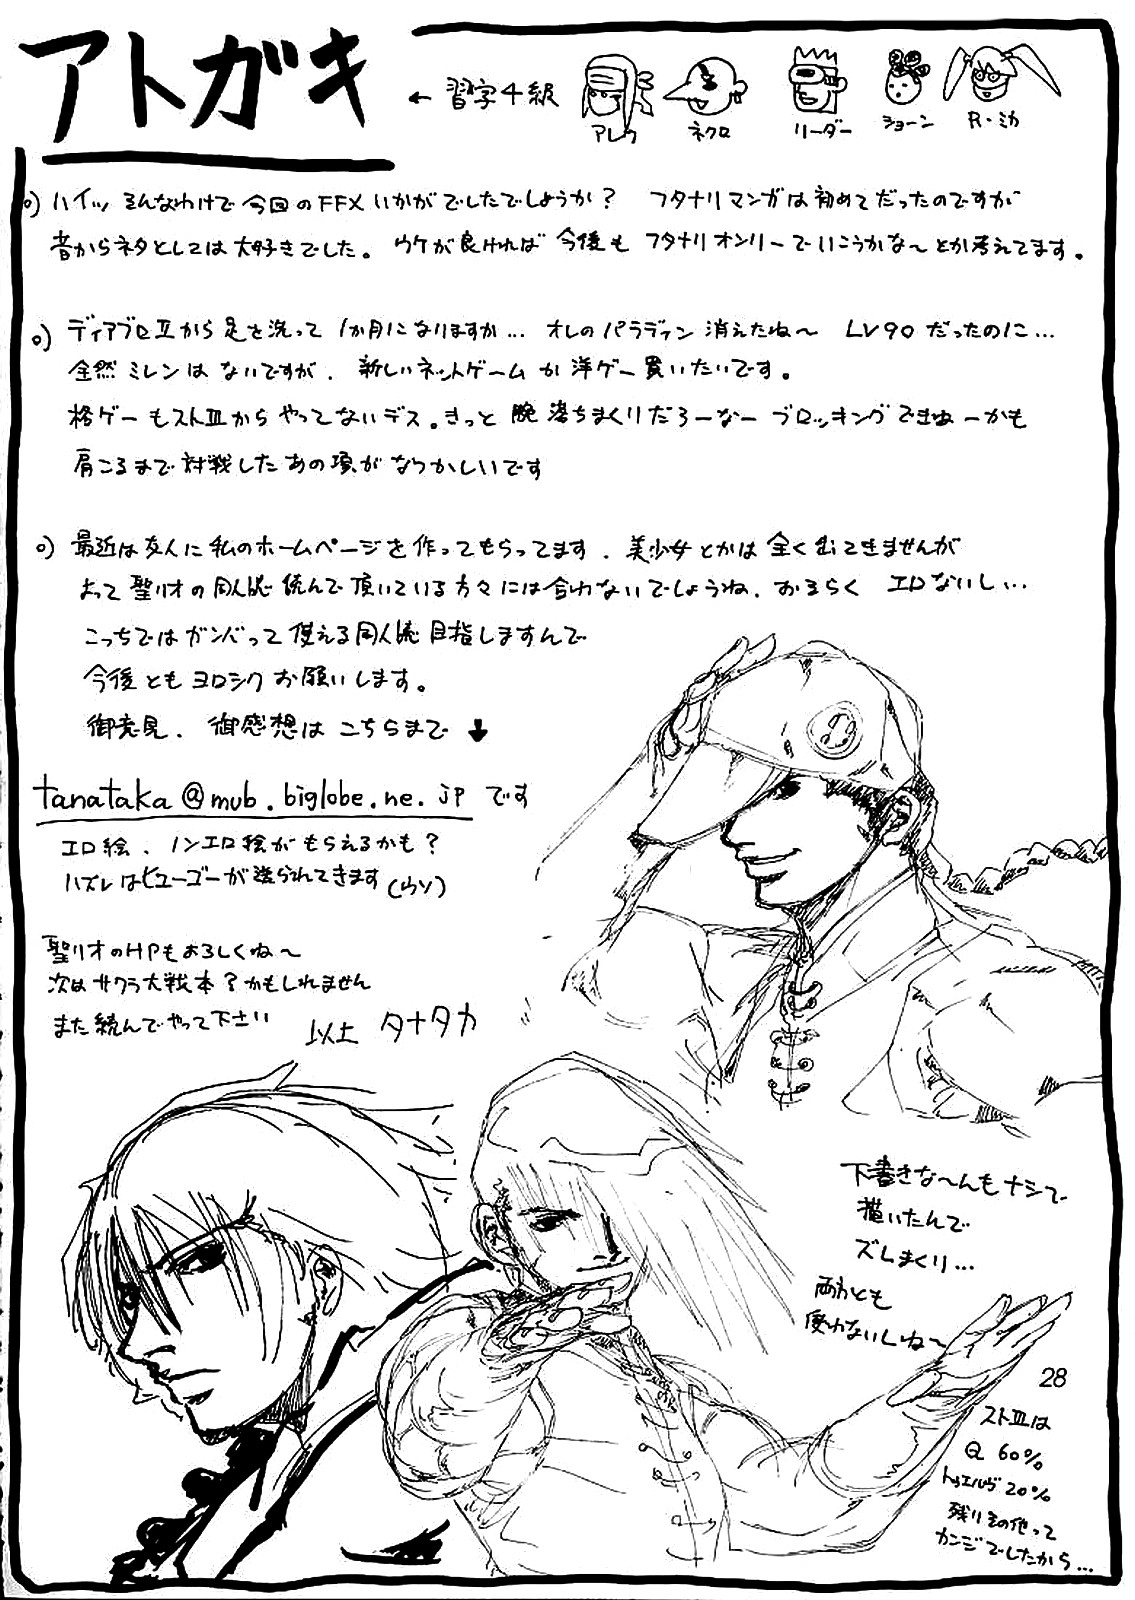 アトガキ
← 習字4級
アレク
ネクロ
リーダー
ショーン
R・ミカ
o) ハイッ そんなわけで 今回のFFX いかがでしたでしょうか? フタナリマンガは初めてだったのですが
昔からネタとしては大好きでした。 ウケが良ければ 今後も フタナリオンリーでいこうかな〜 とか考えてます。
o) ディアブロⅡから足を洗って 1か月になりますか… オレのパラディン 消えたね〜 LV90 だったのに…
全然ミレンは ないですが、 新しいネットゲーム か 洋ゲー買いたいです。
格ゲーもストⅢから やってないデス。きっと 腕 落ちまくりだろーなー ブロッキングできねーかも
肩こるまで対戦した あの頃が なつかしいです
o) 最近は友人に私のホームページを作ってもらってます、 美少女とかは 全く出てきませんが
よって 聖リオの同人誌 読んで頂いている方々には合わないでしょうね、おそらく エロないし…
こっちではガンバって 使える同人誌 目指しますんで
今後とも ヨロシク お願いします。
御意見、 御感想は こちらまで ↓
tanataka@mub.biglobe.ne.jp です
エロ絵、ノンエロ絵が もらえるかも?
ハズレはヒューゴーが送られてきます(ウソ)
聖リオのHPもよろしくね〜
次はサクラ大戦本?かもしれません
また読んでやって下さい
以上 タナタカ
下書きな〜んもナシで
描いたんで
ズレまくり…
両方とも
使わないしね〜
28
ストⅢは
Q 60%
トゥエルヴ 20%
残りその他って
カンジでしたから…